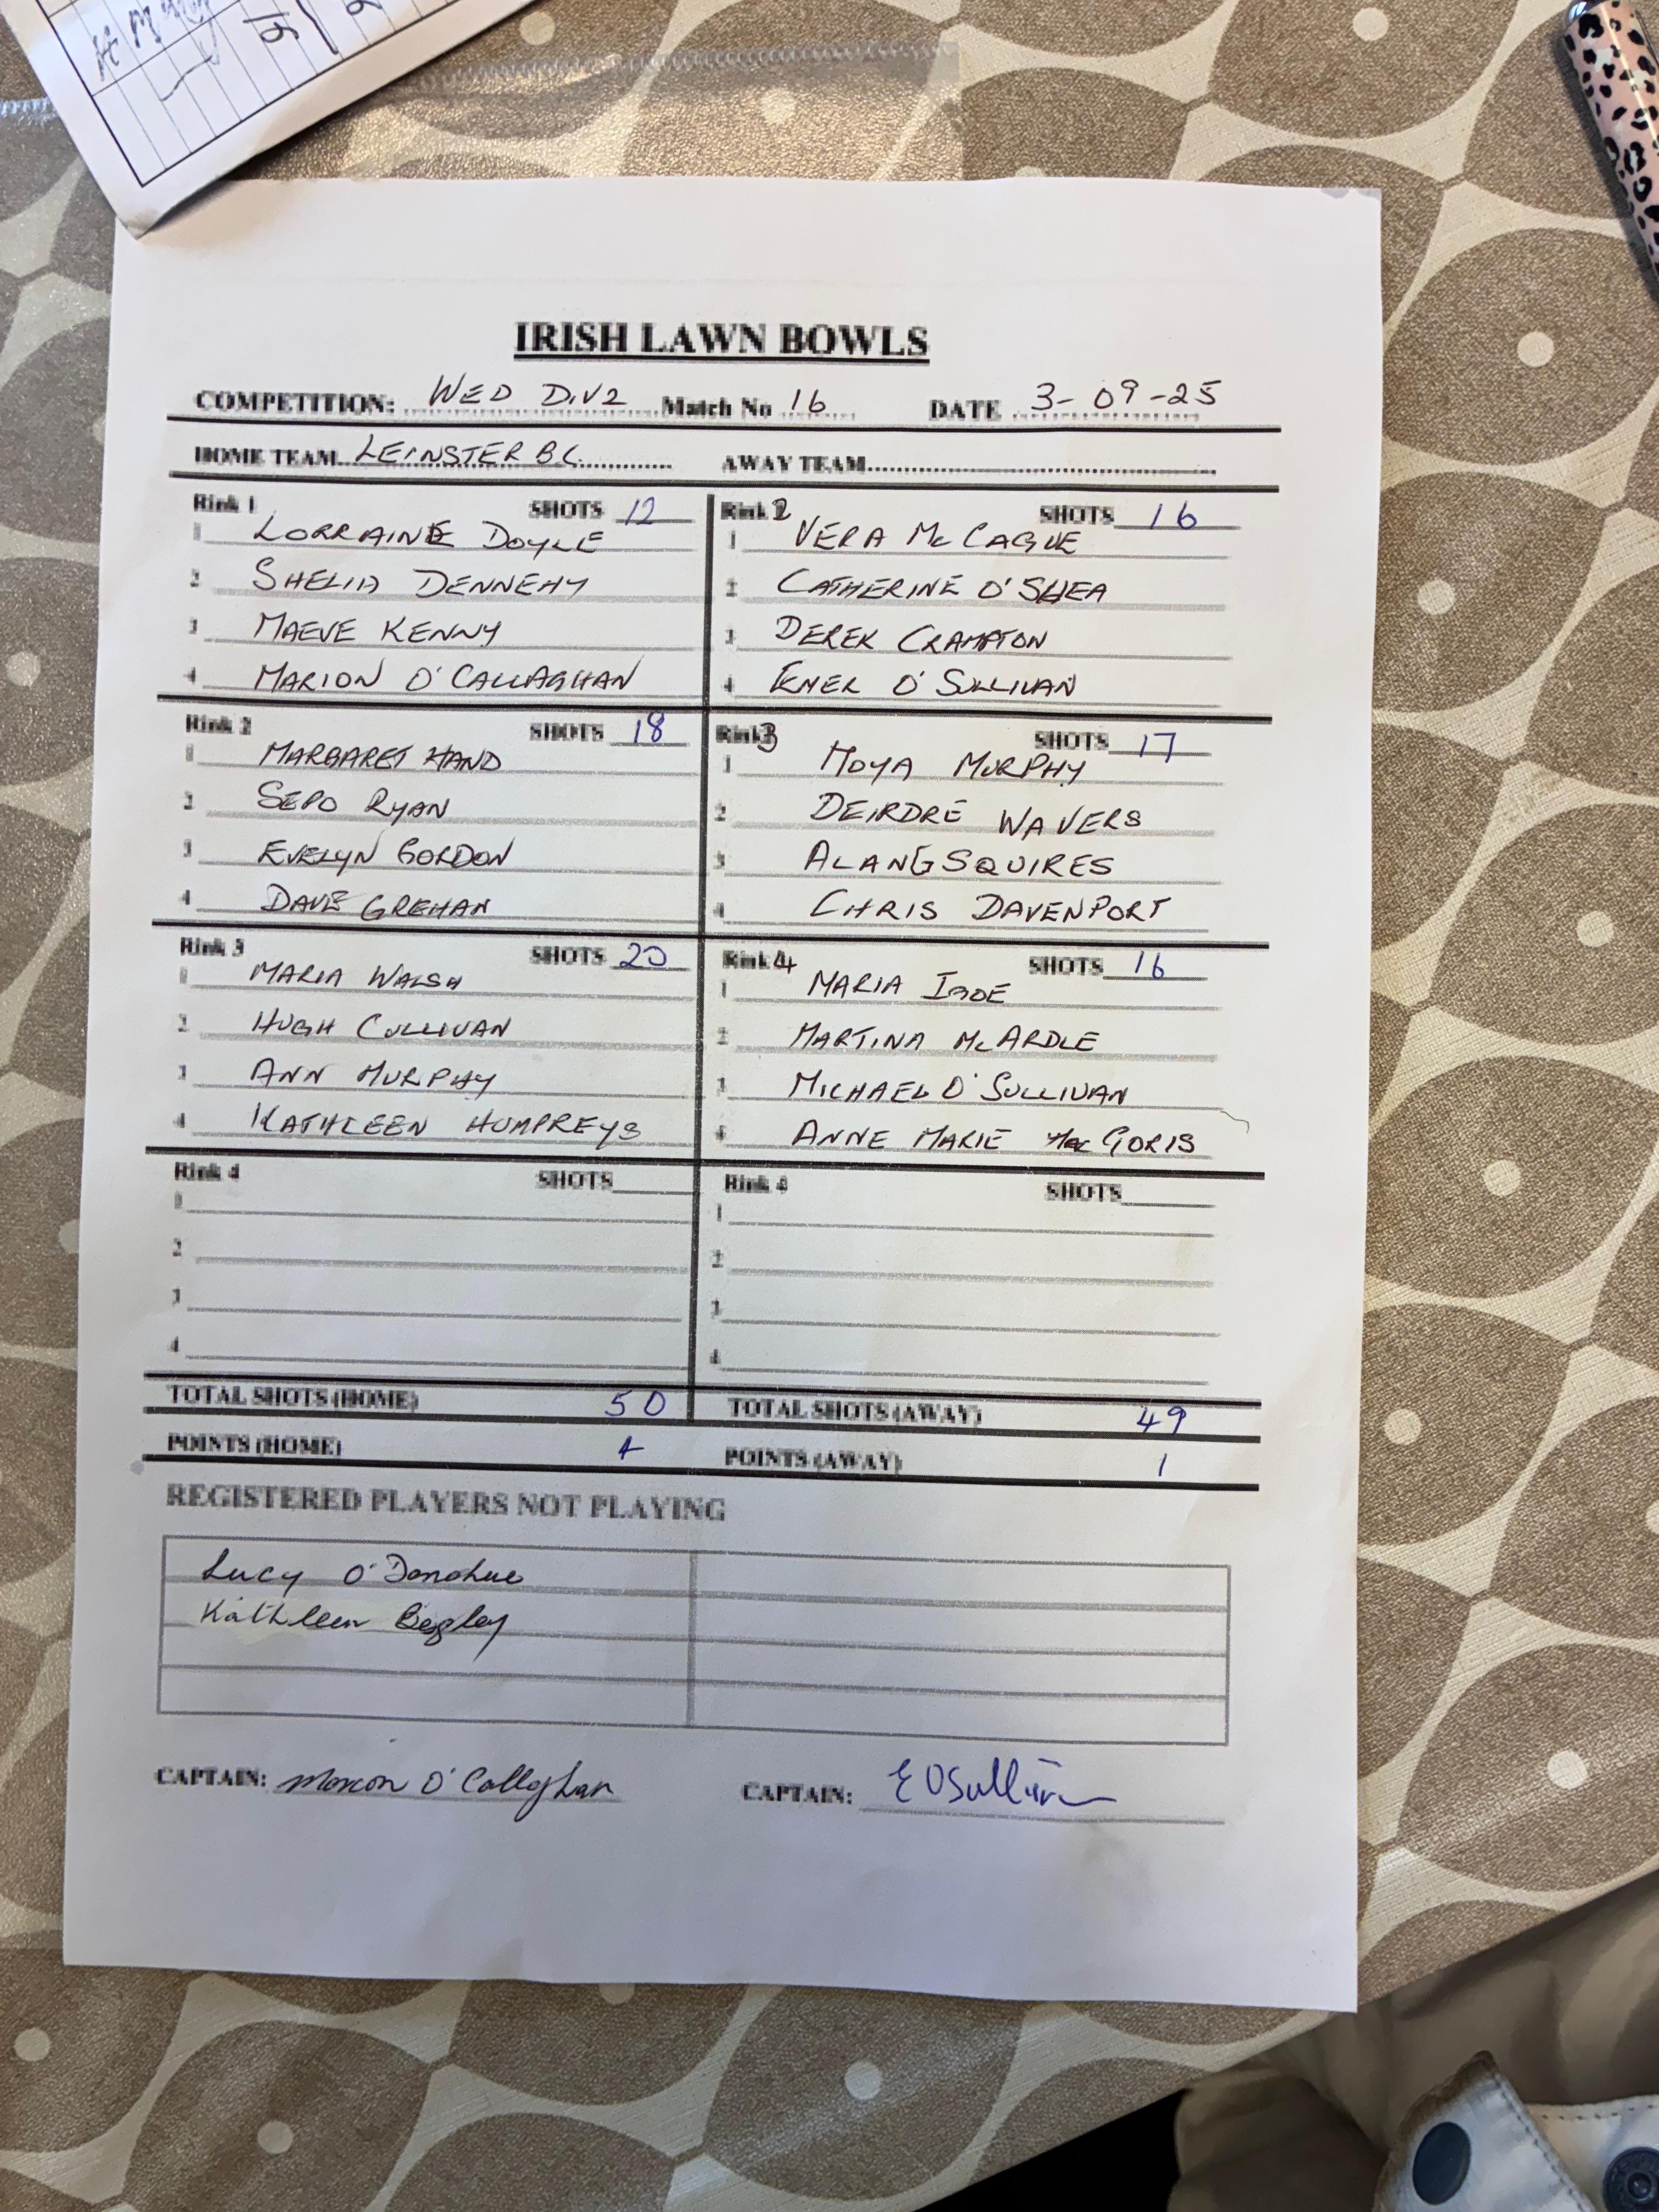 IRISH LAWN BOWLS
COMPETITION: WED DIV2 Match No 16 DATE 3-09-25
HOME TEAM LEINSTER B.C. AWAY TEAM
Rink 1 SHOTS 12
1 LORRAINE DOYLE
2 SHELIA DENNEHY
3 MAEVE KENNY
4 MARION O'CALLAGHAN
Rink 2 SHOTS 16
1 VERA McCAGUE
2 CATHERINE O'SHEA
3 DEREK CRAMPTON
4 EMER O'SULLIVAN
Rink 2 SHOTS 18
1 MARGARET HAND
2 SEPO RYAN
3 EVELYN GORDON
4 DAVE GREHAN
Rink 3 SHOTS 17
1 MOYA MURPHY
2 DEIRDRE WAVERS
3 ALAN G SQUIRES
4 CHRIS DAVENPORT
Rink 3 SHOTS 20
1 MARIA WALSH
2 HUGH CULLIVAN
3 ANN MURPHY
4 KATHLEEN HUMPREYS
Rink 4 SHOTS 16
1 MARIA
2 MARTINA McARDLE
3 MICHAEL O'SULLIVAN
4 ANNE MARIE MacGORIS
Rink 4 SHOTS
1
2
3
4
Rink 4 SHOTS
1
2
3
4
TOTAL SHOTS (HOME) 50 TOTAL SHOTS (AWAY) 49
POINTS (HOME) 4 POINTS (AWAY) 1
REGISTERED PLAYERS NOT PLAYING
Lucy O'Donohue
Kathleen Begley
CAPTAIN: Marion O'Callaghan CAPTAIN: E OSullivan